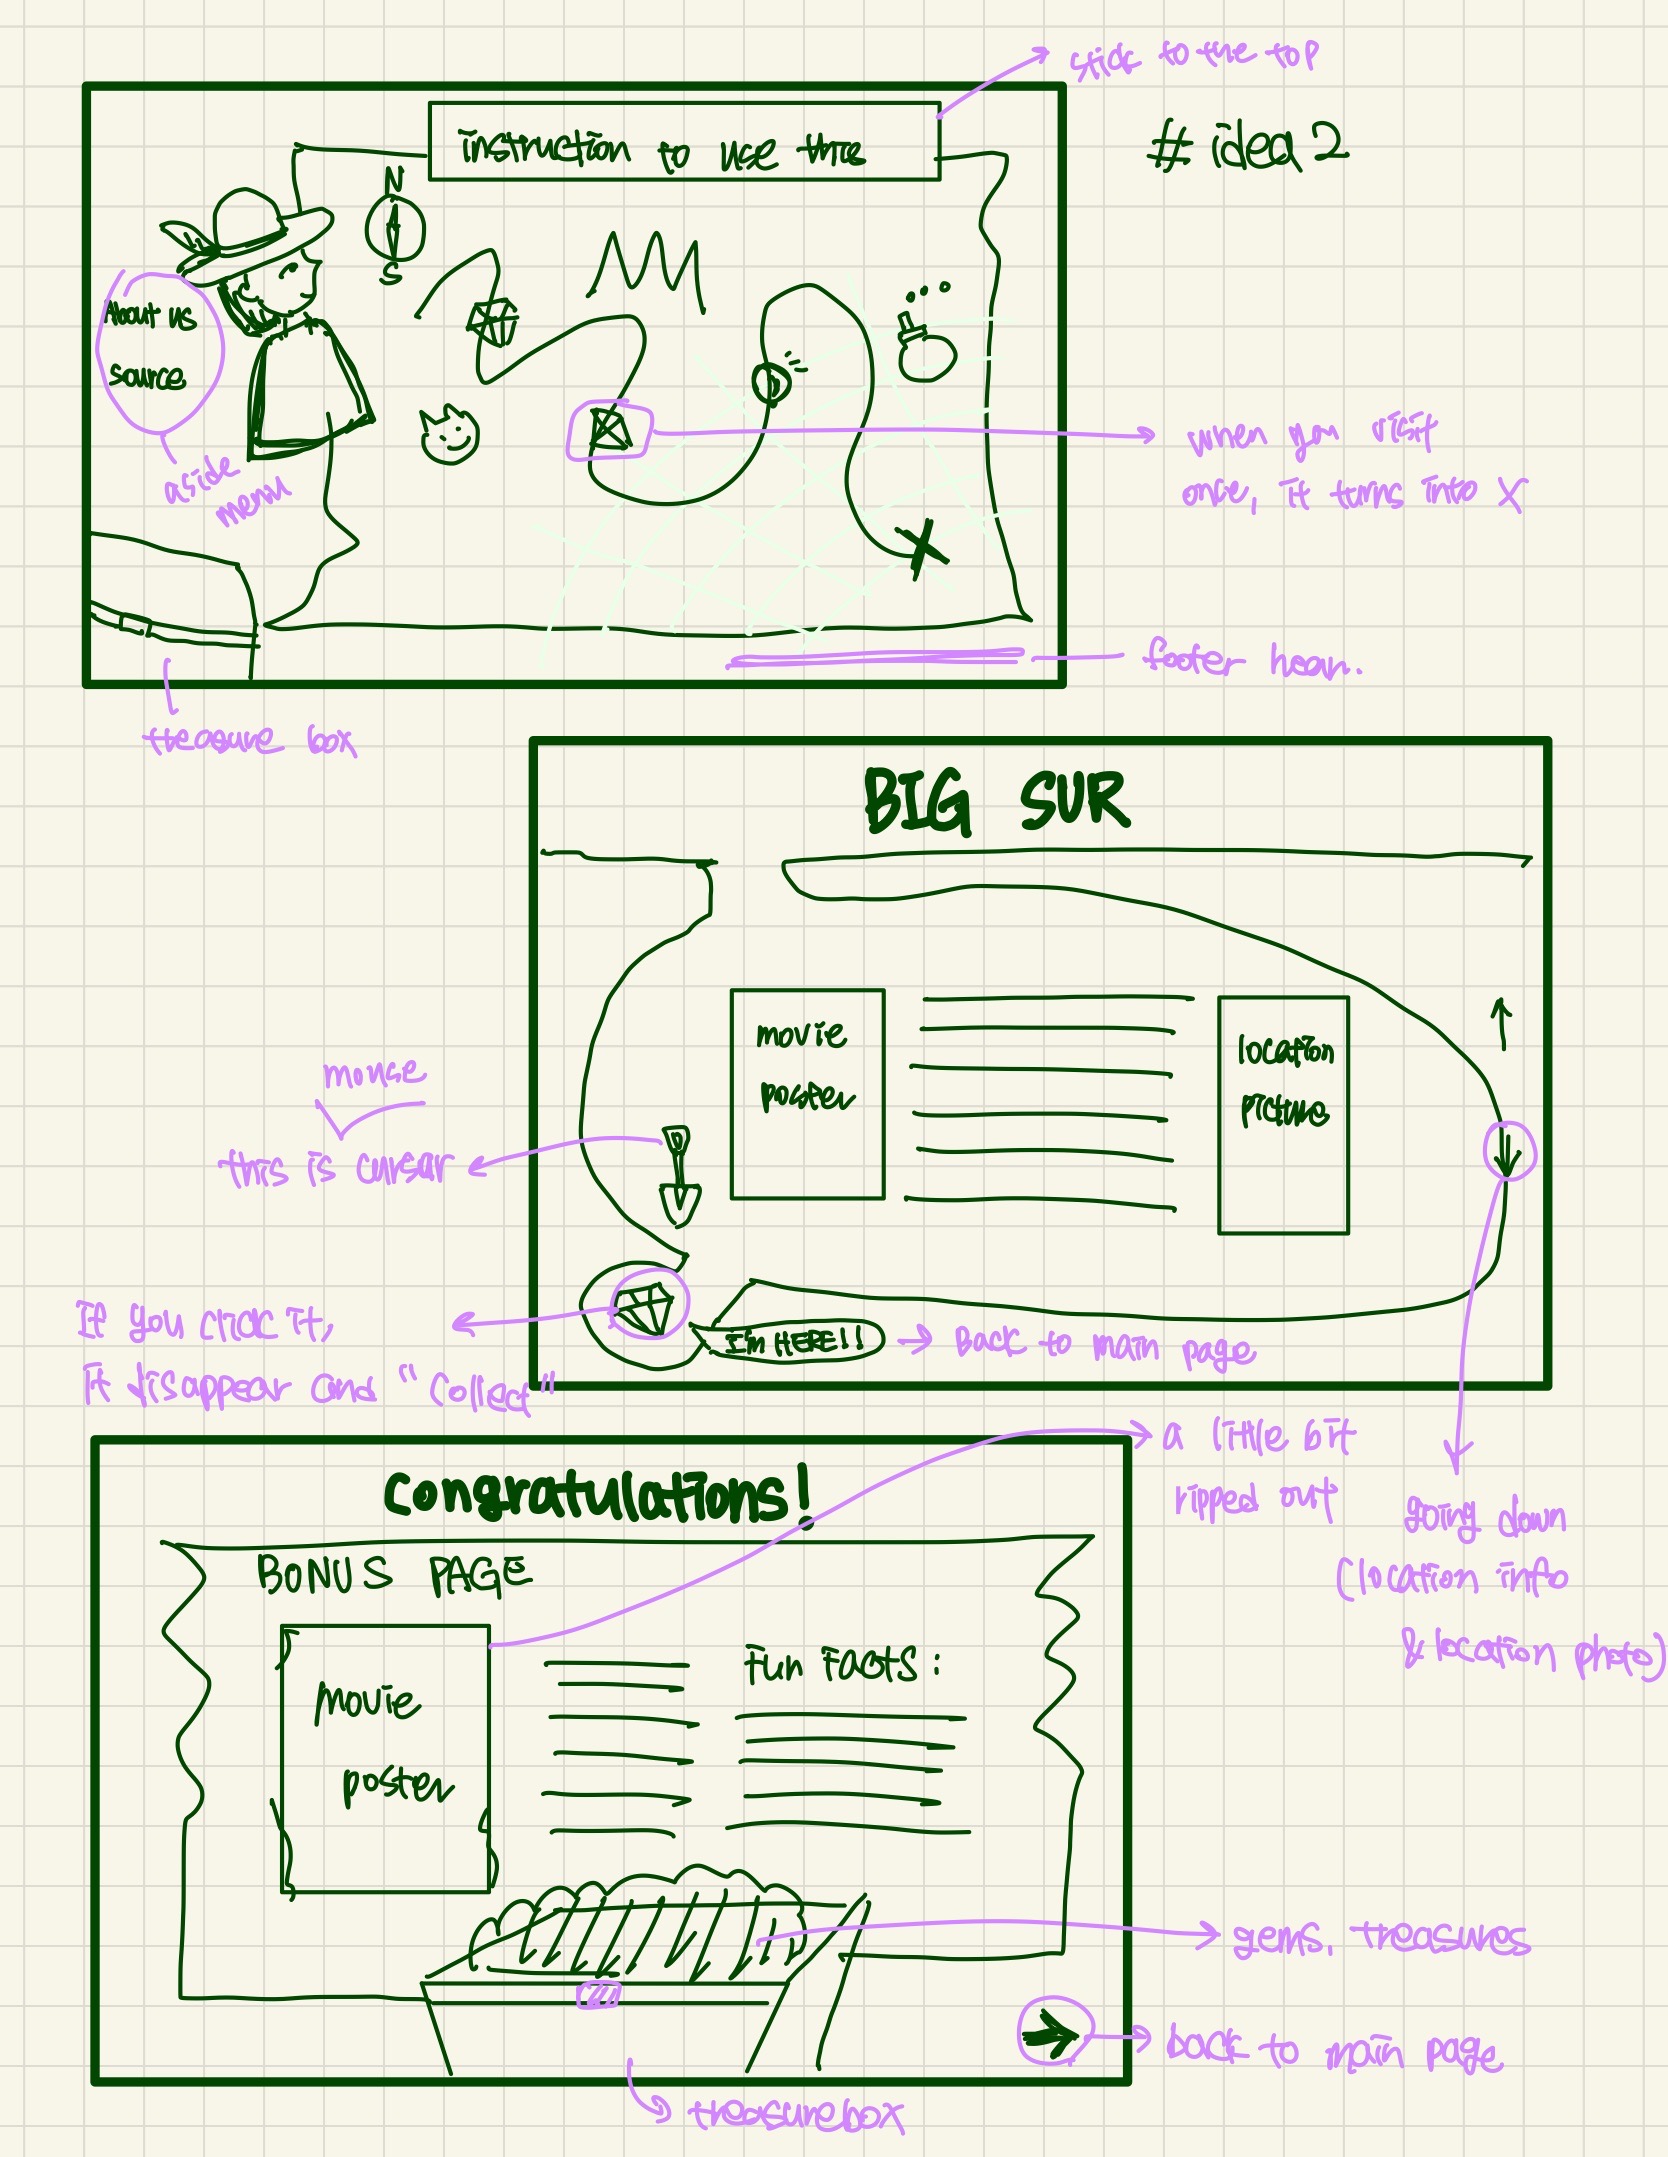 stick to the top
# idea 2
instruction to use this
N
S
About us
source
aside
menu
when you visit
once, it turns into X
footer hear.
treasure box
BIG SUR
movie
poster
location
picture
mouse
this is cursor
If you click it,
it disappear and "collect"
I'm HERE!!
Back to main page
a little bit
ripped out
going down
(location info
& location photo)
congratulations!
BONUS PAGE
movie
poster
Fun FACTS:
gems. treasures
back to main page
treasurebox